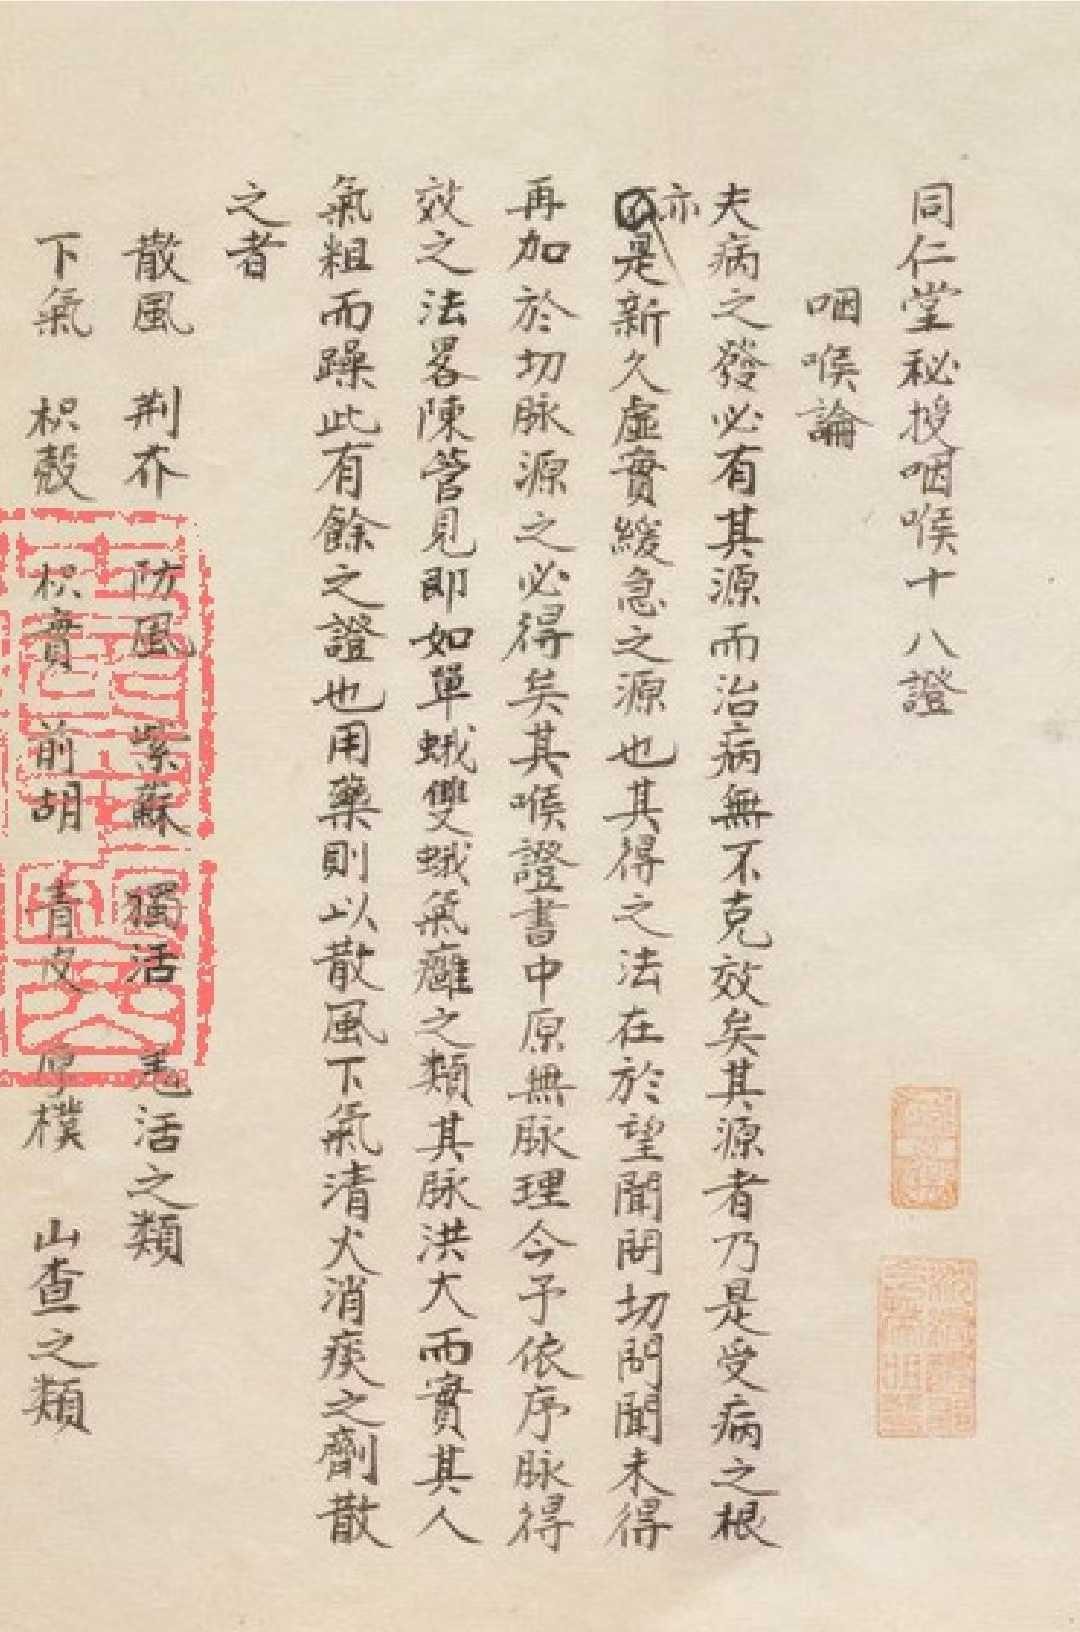 同仁堂秘授咽喉十八證
咽喉論
夫病之發必有其源而治病無不克效矣其源者乃是受病之根
亦是新久虛實緩急之源也其得之法在於望聞問切問聞未得
再加於切脉源之必得矣其喉證書中原無脉理今予依序脉得
效之法畧陳管見即如單蛾雙蛾氣癰之類其脉洪大而實其人
氣粗而躁此有餘之證也用藥則以散風下氣清火消痰之劑散
之者
散風 荆芥 防風 紫蘇 獨活 羌活之類
下氣 枳殼 枳實 前胡 青皮 厚樸 山查之類